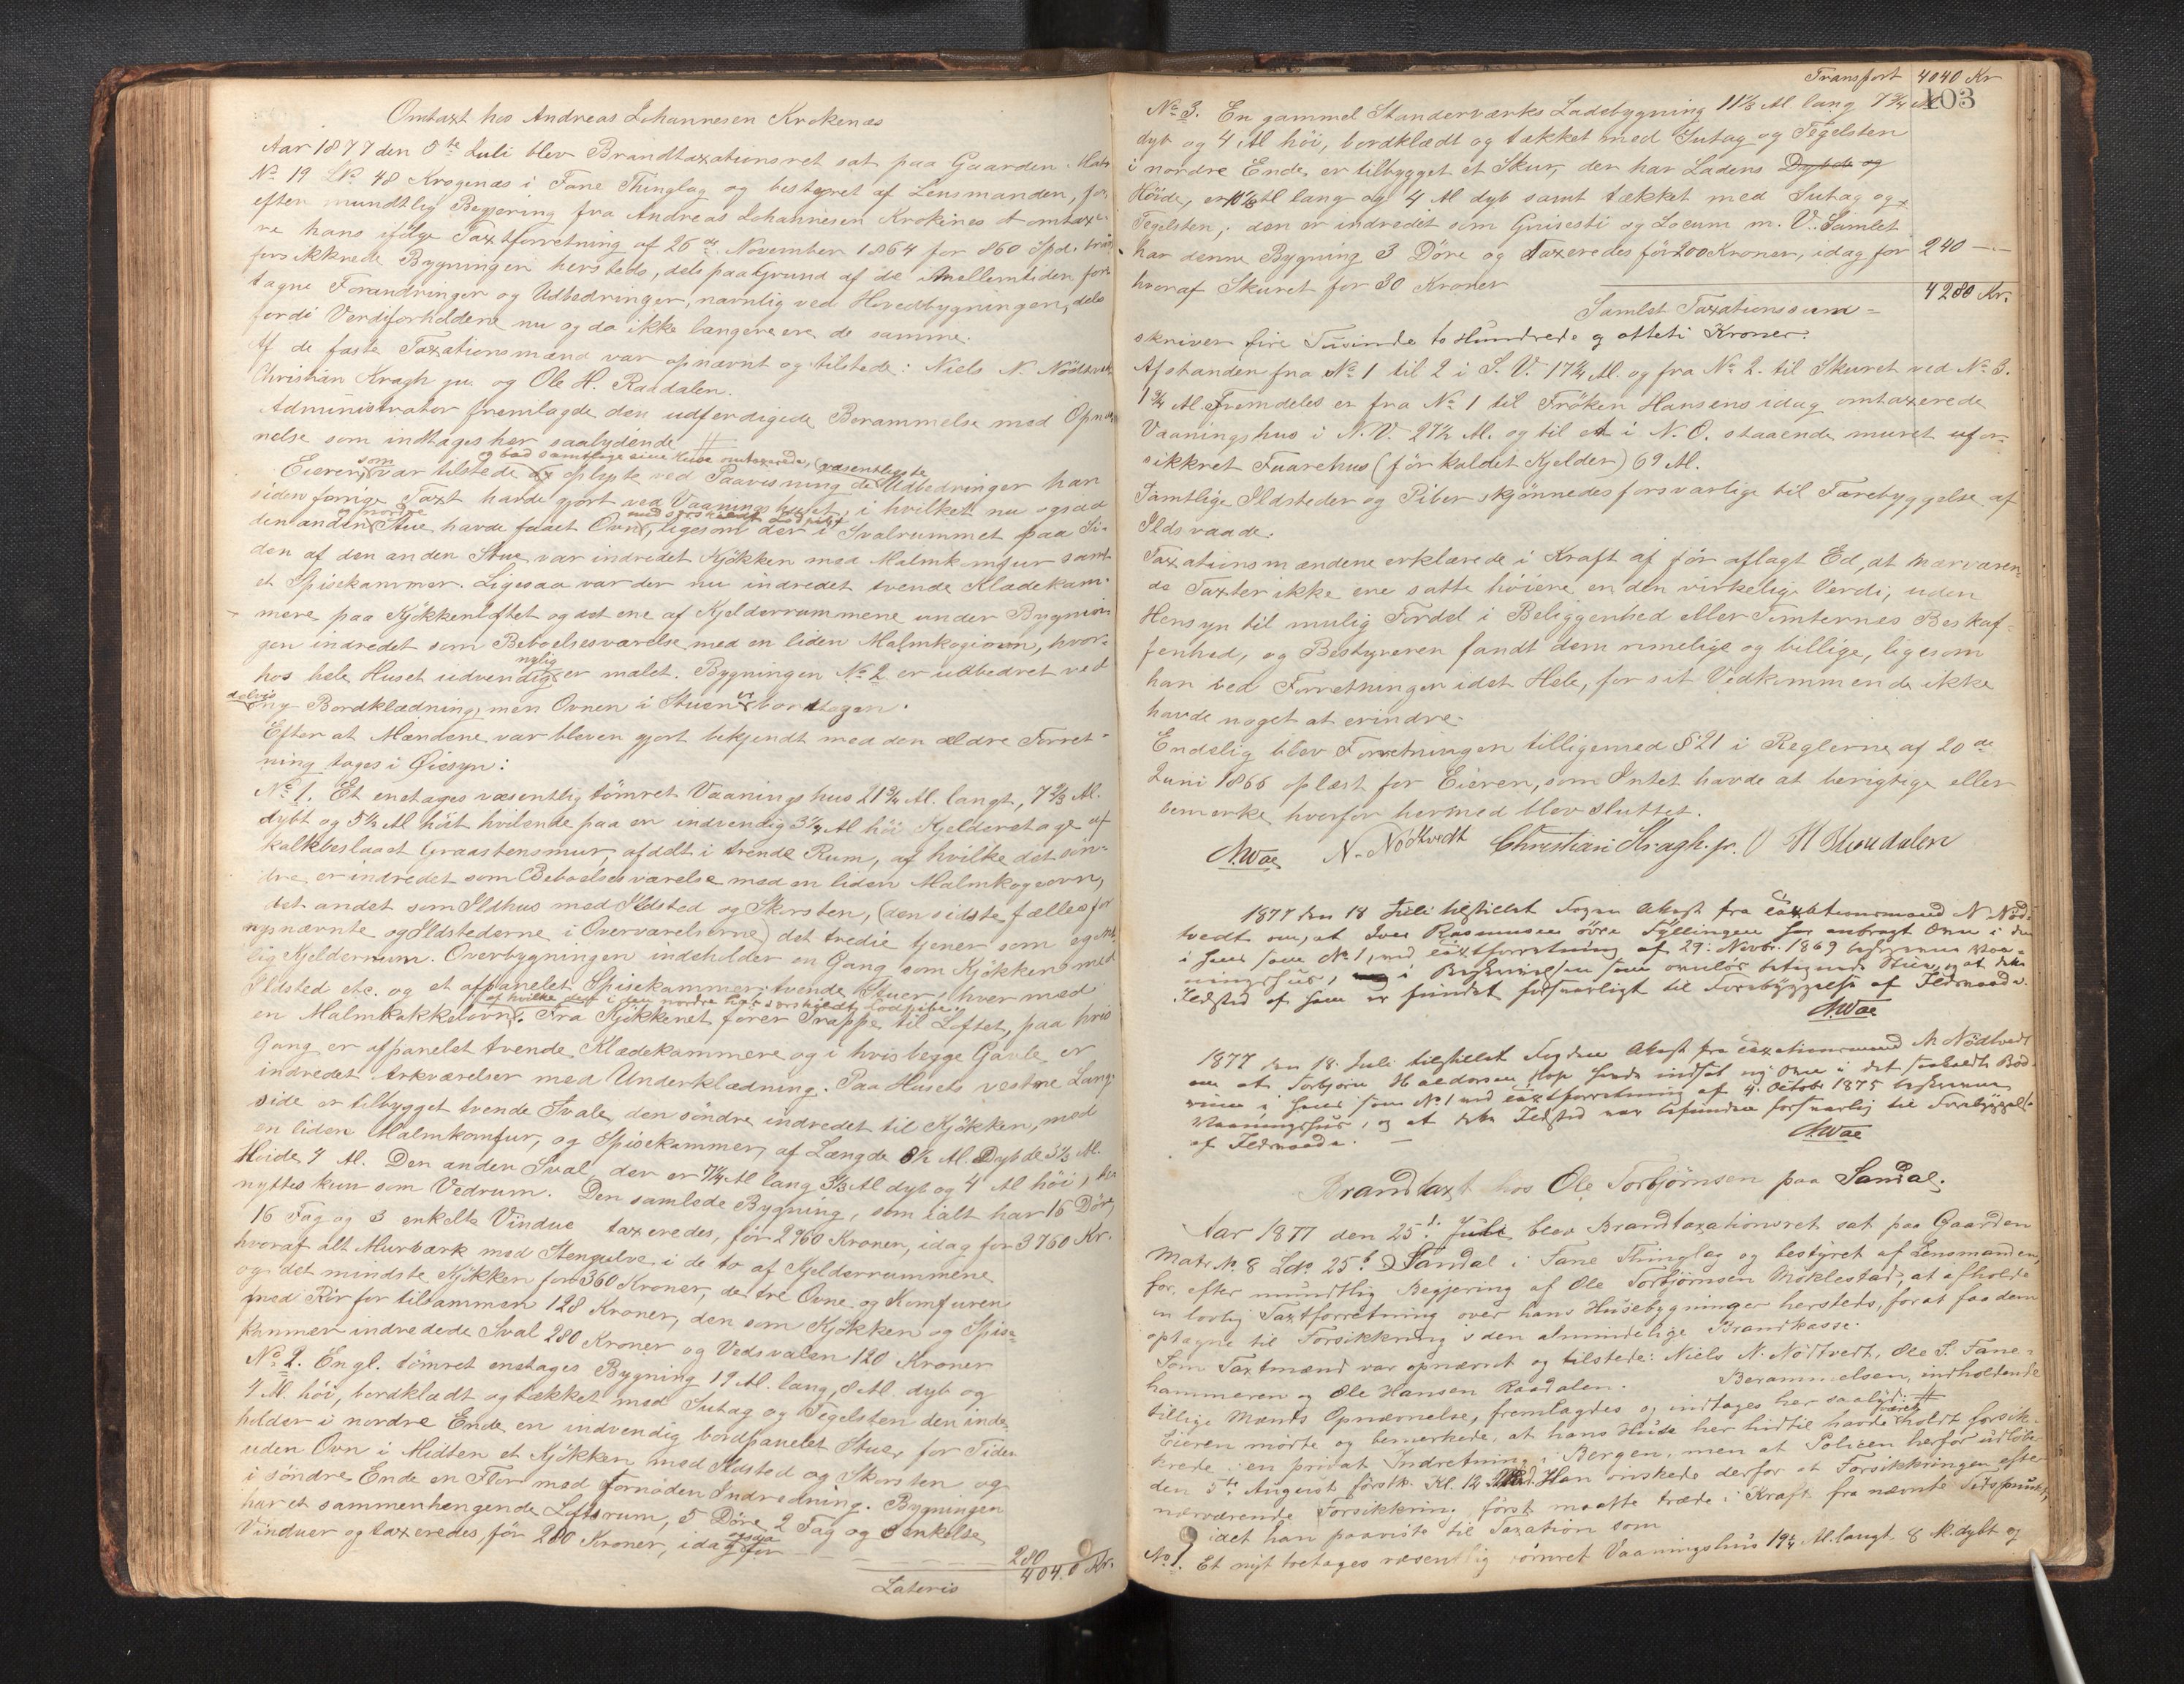 Omtaxt hos Andreas Johannesen Krokenæs
Aar 1877 den 5te Juli blev Brandtaxationsret sat paa Gaarden Matr
No 19 LNo 48 Krogenæs i Fane Thinglag og bestyret af Lensmanden, for
efter mundtlig Begjering fra Andreas Johannesen Krokenæs at omtaxe-
re hans ifølge Taxtforretning af 26de November 1864 for 860 Spd.
forsikkrede Bygninger hersteds, dels paa Grund af de i Mellemtiden fore
tagne Forandringer og Udbedringer, navnlig ved Hovedbygningen, dels
fordi Verdiforholdene nu og da ikke længere ere de samme.
Af de faste Taxationsmænd var opnævnt og tilstede: Niels N. Nødtvedt
Christian Kragh jr. og Ole H. Raadalen.
Administrator fremlagde den udferdigede Berammelse med Opnæv-
nelse som indtages her saalydende #
Eieren, som var tilstede og bad samtlige sine Huse omtaxerede, oplyste ved Paavisning de væsentligste Udbedringer han
siden forrige Taxt havde gjort ved Vaaningshuset, i hvilket nu ogsaa
den anden nordre Stue havde faaet Ovn med særskildt Lodpibe, ligesom der i Svalrummet paa Si-
den af den anden Stue var indredet Kjøkken med Malmkomfur samt
et Spisekammer. Ligesaa var der nu indredet tvende Klædekam-
mere paa Kjøkkenloftet og det ene af Kjelderrummene under Bygnin
gen indredet som Beboelsesværelse med en liden Malmkogeovn, hvor-
hos hele Huset udvendig nylig er malet. Bygningen No 2 er udbedret ved
delvis ny Bordklædning, men Ovnen i Stuen er borttagen.
Efter at Mændene var bleven gjort bekjendt med den ældre Forret-
ning toges i Øiesyn:
No 1. Et enetages væsentlig tømret Vaaningshus 21 3/4 Al. langt, 7 2/3 Al.
dybt og 5 1/2 Al høit hvilende paa en indvendig 3 1/4 Al høi Kjelderetage af
kalkbeslaaet Graastensmur, afdelt i trende Rum, af hvilke det søn-
dre er indredet som Beboelsesværelse med en liden Malmkogeovn,
det andet som Ildhus med Ildsted og Skorsten, (den sidste fælles for
nysnævnte og Ildstederne i Overværelserne) det tredie tjener som egent
lig Kjelderrum. Overbygningen indeholder en Gang som Kjøkken med
Ildsted etc. og et afpanelet Spisekammer; tvende Stuer, hver med
en Malmkakkelovn, af hvilke den i den nordre har særskildt Lodpibe. Fra Kjøkkenet fører Trappe til Loftet, paa hvis
Gang er afpanelet tvende Klædekammere og i hvis begge Gavle er
indredet Arkværelser med Underklædning. Paa Husets vestre Lang-
side er tilbygget tvende Svale, den søndre indredet til Kjøkken, med
en liden Malmkomfur, og Spisekammer, af Længde 8 1/2 Al. Dybde 3 1/3 Al.
Høide 4 Al. Den anden Sval, der er 7 1/4 Al lang 3 1/3 Al dyb og 4 Al høi, be
nyttes kun som Vedrum. Den samlede Bygning, som ialt har 16 Døre
16 Fag og 3 enkelte Vindue taxeredes, før 2960 Kroner, idag for 3760 Kr.
hvoraf alt Murværk med Stengulve i de to af Kjelderrummene
og det mindste Kjøkken for 360 Kroner, de tre Ovne og Komfuren
med Rør for tilsammen 128 Kroner, den som Kjøkken og Spise-
kammer indredede Sval 280 Kroner og Vedsvalen 120 Kroner
No 2. En gl. tømret enetages Bygning 19 Al. lang, 8 Al. dyb og
4 Al. høi, bordklædt og tækket med Sutag og Tegelsten den inde
holder i nordre Ende en indvendig bordpanelet Stue, for Tiden
uden Ovn i Midten et Kjøkken med Ildsted og Skorsten og
i søndre Ende en Flor med fornøden Indredning. Bygningen
har et sammenhængende Loftsrum, 5 Døre 2 Fag og 3 enkelte
Vinduer og taxeredes, før 280 Kroner, idag ogsaa for 280
Lateris 4040 Kr.
Transport 4040 Kr
103
No 3. En gammel Standerværks Ladebygning 11 1/2 Al. lang 7 3/4 Al.
dyb og 4 Al høi, bordklædt og tækket med Sutag og Tegelsten
i nordre Ende er tilbygget et Skur, der har Ladens Dybde og
Høide, er 4 1/2 Al lang og 4 Al dyb samt tækket med Sutag og
Tegelsten; den er indredet som Grisesti og Locum m. V. Samlet
har denne Bygning 3 Døre og taxeredes før 200 Kroner, idag for 240 —
hvoraf Skuret for 30 Kroner
Samlet Taxationssum = 4280 Kr.
skriver fire Tusinde to Hundrede og otteti Kroner.
Afstanden fra No 1 til 2 i S. V. 17 1/4 Al. og fra No 2. til Skuret ved No 3.
1 3/4 Al. Fremdeles er fra No 1 til Frøken Hansens idag omtaxerede
Vaaningshus i N. V. 27 1/2 Al. og til et i N. O. staaende muret ufor-
sikkret Faarehus (før kaldet Kjelder) 69 Al.
Samtlige Ildsteder og Piber skjønnedes forsvarlige til Forebyggelse af
Ildsvaade.
Taxationsmændene erklærede i Kraft af før aflagt Ed, at nærværen-
de Taxter ikke ere satte høiere en den virkelige Verdi, uden
Hensyn til mulig Fordel i Beliggenhed eller Tomternes Beskaf-
fenhed, og Bestyreren fandt dem rimelige og billige, ligesom
han ved Forretningen idet Hele, for sit Vedkommende ikke
havde noget at erindre.
Endelig blev Forretningen tilligemed §21 i Reglerne af 20de
Juni 1866 oplæst for Eieren, som Intet havde at berigtige eller
bemerke hvorfor hermed blev sluttet.
N. Nødtvedt Christian Kragh jr. O H Raadalen
1877 den 18 Juli tilstillet Fogden Attest fra Taxationsmand N Nød-
tvedt om, at Iver Rasmussen øvre Fyllingen har anbragt Ovn i den
i hans som No 1, ved Taxtforretning af 29. Novbr. 1869 beskrevne Vaa-
ningshus, i Beskrivelsen som ovnløs betegnede Stue, og at dette
Ildsted af ham er fundet forsvarligt til Forebyggelse af Ildsvaade.
1877 den 18. Juli tilstillet Fogden Attest fra Taxationsmand N Nødtvedt
om at Torbjørn Haldorsen Hop havde indsat ny Ovn i det saakaldte Bod-
rum i hans som No 1 ved Taxtforretning af 4. Octobr 1875 beskrevne
Vaaningshus, og at dette Ildsted var befunden forsvarlig til Forebyggelse
af Ildsvaade.
Brandtaxt hos Ole Torbjørnsen paa Sandal.
Aar 1877 den 25de Juli blev Brandtaxationsret sat paa Gaarden
Matr No. 8 LNo. 25b Sandal i Fane Thinglag og bestyret af Lensmanden,
for, efter mundtlig Begjering af Ole Torbjørnsen Møklestad, at afholde
en lovlig Taxtforretning over hans Husebygninger hersteds, for at faa dem
optagne til Forsikkring i den almindelige Brandkasse.
Som Taxtmænd var opnævnt og tilstede: Niels N. Nødtvedt, Ole S. Fane-
hammeren og Ole Hansen Raadalen. Berammelsen, indholdende
tillige Mænds Opnævnelse, fremlagdes og indtages her saalyd: #
Eieren mødte og bemerkede, at hans Huse her hidtil havde været holdt forsik-
krede i en privat Indretning i Bergen, men at Policen herfor udløber
den 5te August førstk. Kl. 12 Mid. Han ønskede derfor at Forsikkringen efter
nærværende Forsikkring først maatte træde i Kraft fra nævnte Tidspunkt,
idet han paaviste til Taxation som
No 1. Et nyt toetages væsentlig tømret Vaaningshus 19 1/4 Al. langt. 8 Al. dybt og